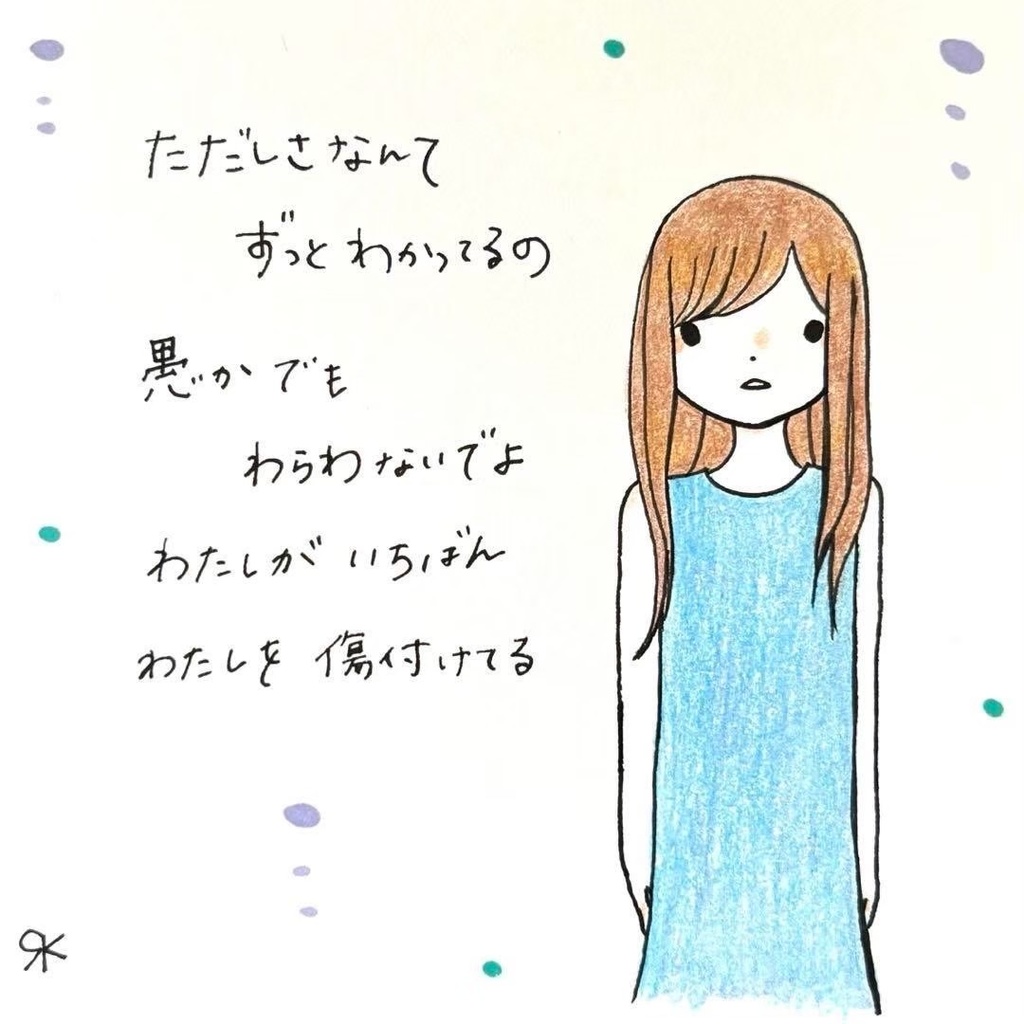 ただしさなんて
ずっとわかってるの
愚かでも
わらわないでよ
わたしが いちばん
わたしを 傷付けてる